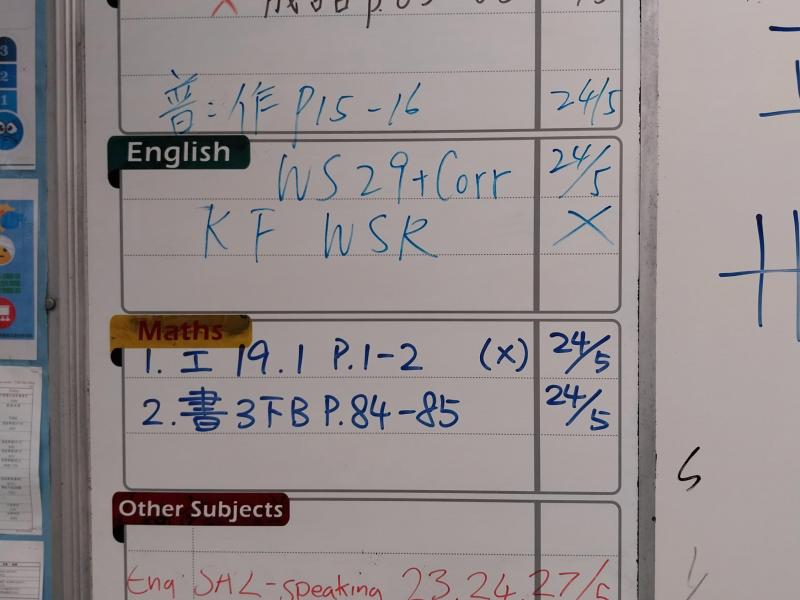 普：作 P15-16 24/5
English
WS 29+Corr 24/5
K F WSR X
Maths
1. 工 19.1 P.1-2 (x) 24/5
2. 書 3下B P.84-85 24/5
Other Subjects
Eng: SHL-speaking 23.24.27/5
3
2
1